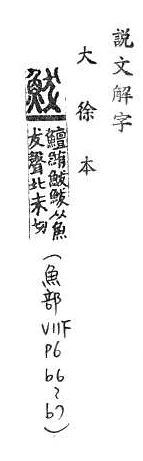 說文解字
大徐本
鮁
鱣鮪鮁鮁从魚
犮聲北末切
(魚部 VIIF P6 b6~b7)